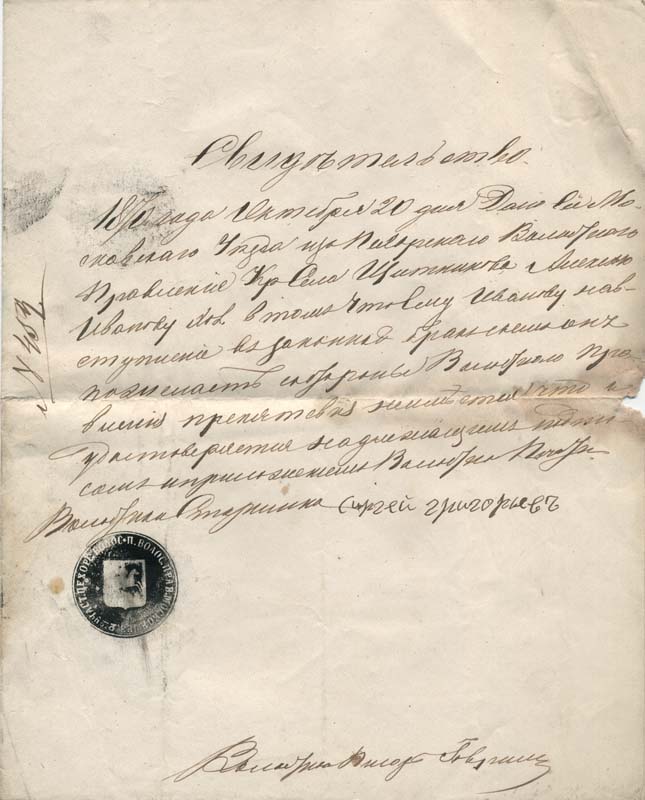 Свидѣтельство.
1870 года Октября 20 дня Дано сіе Мо-
сковскаго Уѣзда изъ Пехорскаго Волостного
Правленія Кр. Села Щитникова Алексею
Иванову въ томъ что ему Иванову на в-
ступленіе въ законный бракъ если онъ
пожелаетъ со стороны Волостного Пра-
вленія препятствія не имѣется что и
удостоверяется надлежащимъ подпи
сомъ и приложеніемъ Волостной Печати.
Волостной Старшина Сергей григорьевъ
№ 459
Волостной Писарь